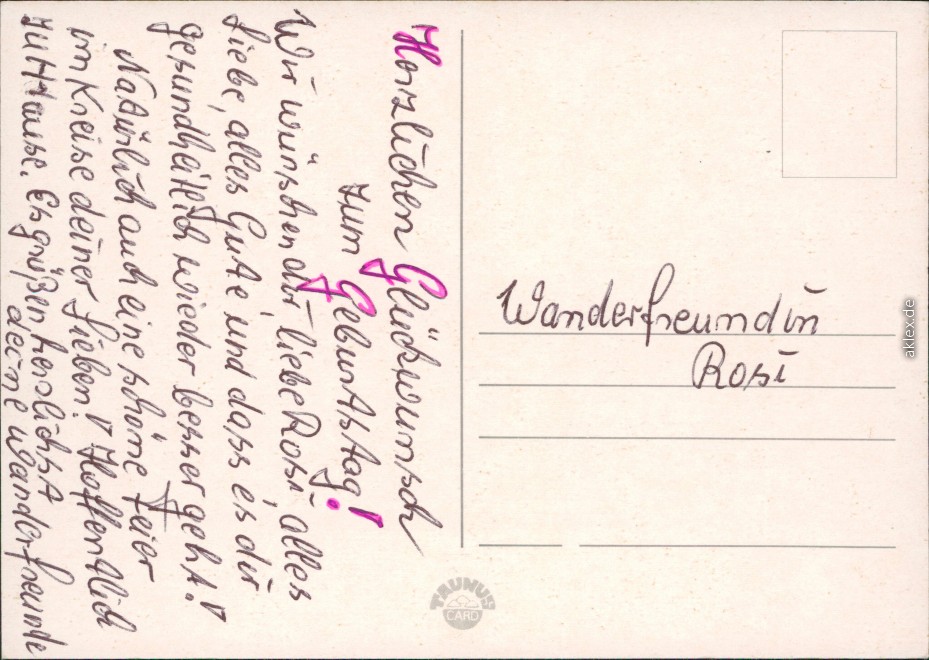 Herzlichen Glückwunsch
zum Geburtstag!
Wir wünschen dir, liebe Rosi - alles
Liebe, alles Gute und dass es dir
gesundheitlich wieder besser geht!
Natürlich auch eine schöne Feier
im Kreise deiner Lieben! Hoffentlich
zu Hause. Es grüßen herzlichst
deine Wanderfreunde
Wanderfreundin
Rosi
TAUNUS
CARD
aklex.de